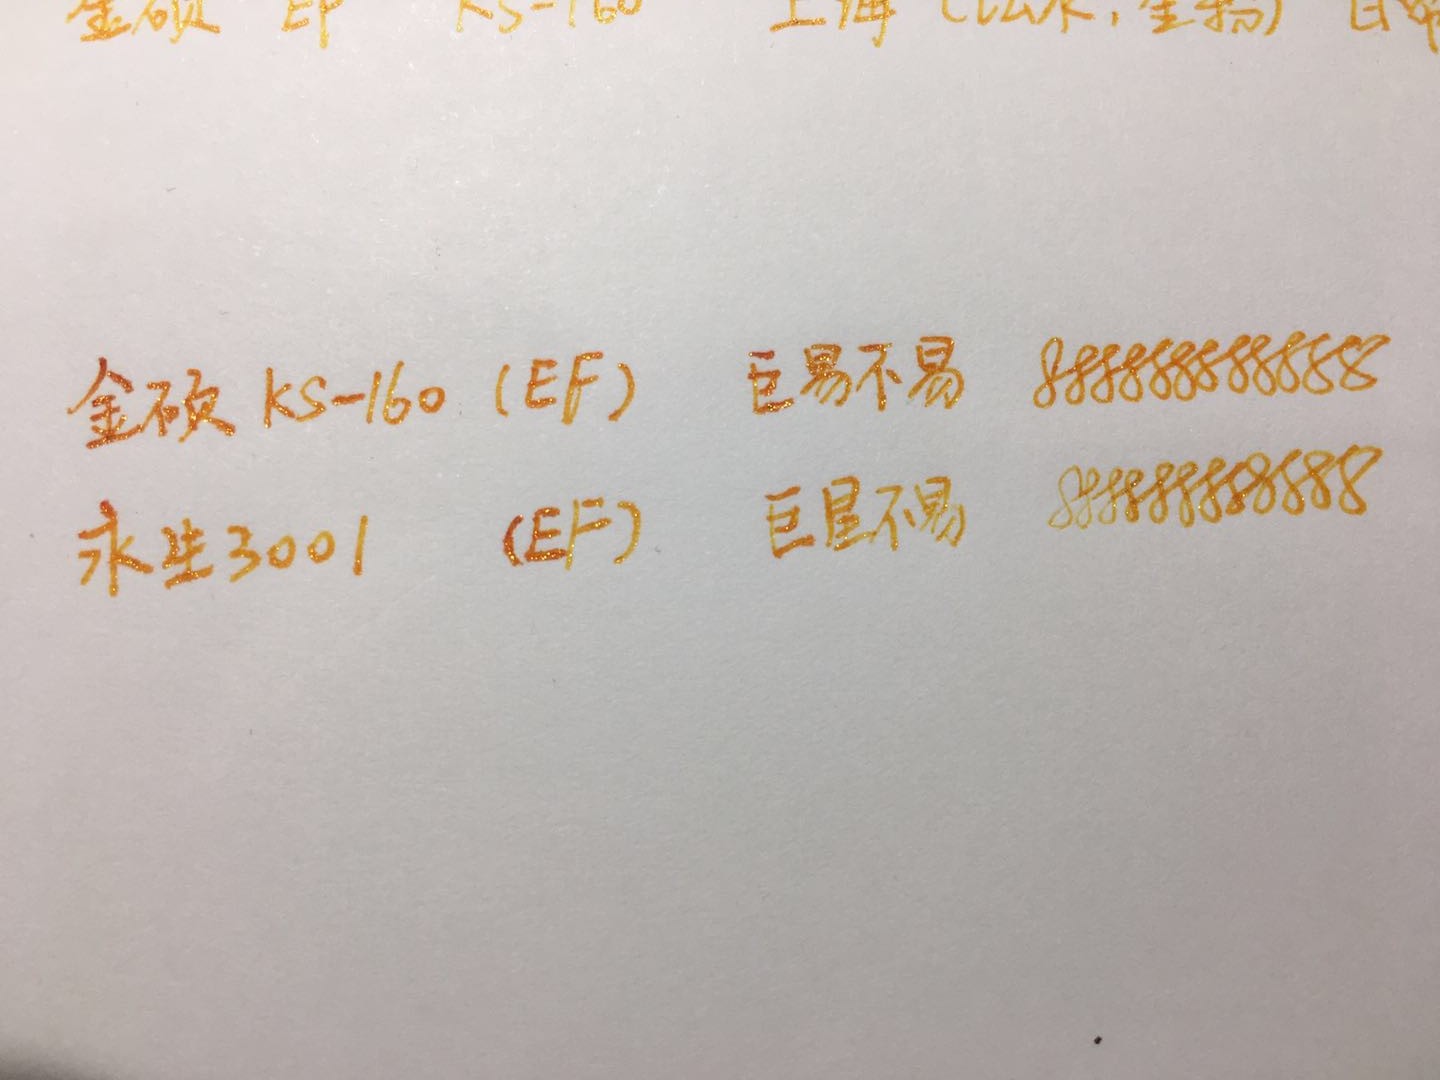 金硕 EF KS-160 上海
金硕 KS-160 (EF) 巨易不易 8888888888888
永生3001 (EF) 巨星不易 888888888888